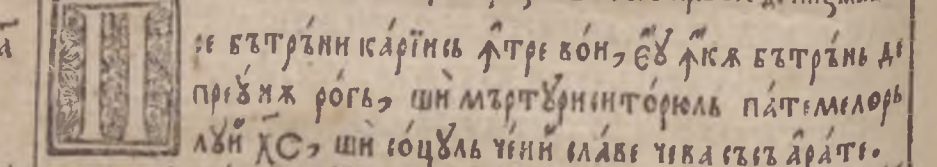 Пре бътрѫ́нїи ка́рїись ꙟ҆́тре во́и, є҆́ꙋ ꙟ҆́кѫ бътрѫ́нь де
преꙋ́нѫ ро́гь, шѝ мъртꙋрисито́рюль па́темилѡрь
лꙋ́и х҃с, шѝ со́цꙋль че́ии сла́ве чева съсъ а҆ра́те.